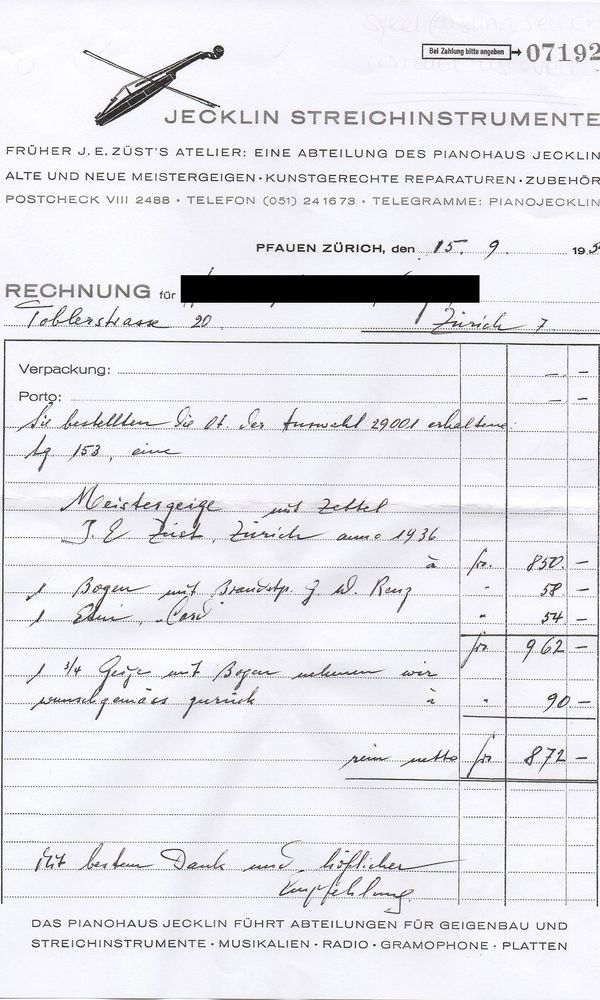 Bei Zahlung bitte angeben 07192
JECKLIN STREICHINSTRUMENTE
FRÜHER J. E. ZÜST'S ATELIER: EINE ABTEILUNG DES PIANOHAUS JECKLIN
ALTE UND NEUE MEISTERGEIGEN · KUNSTGERECHTE REPARATUREN · ZUBEHÖR
POSTCHECK VIII 2488 · TELEFON (051) 241673 · TELEGRAMME: PIANOJECKLIN
PFAUEN ZÜRICH, den 15. 9. 195
RECHNUNG für
Toblerstrasse 20. Zürich 7.
Verpackung: — —
Porto: — —
Sie bestellten die lt. der Auswahl 29001 erhaltene
153, eine
Meistergeige mit Zettel
J. E. Züst, Zürich anno 1936
à fr. 850.—
1 Bogen mit Brandstp. W. Renz " 58.—
1 Etui, " 54.—
fr. 962.—
1 3/4 Geige mit Bogen nehmen wir
wunschgemäss zurück à " 90.—
rein netto fr. 872.—
Mit bestem Dank und höflicher
Empfehlung.
DAS PIANOHAUS JECKLIN FÜHRT ABTEILUNGEN FÜR GEIGENBAU UND
STREICHINSTRUMENTE · MUSIKALIEN · RADIO · GRAMOPHONE · PLATTEN